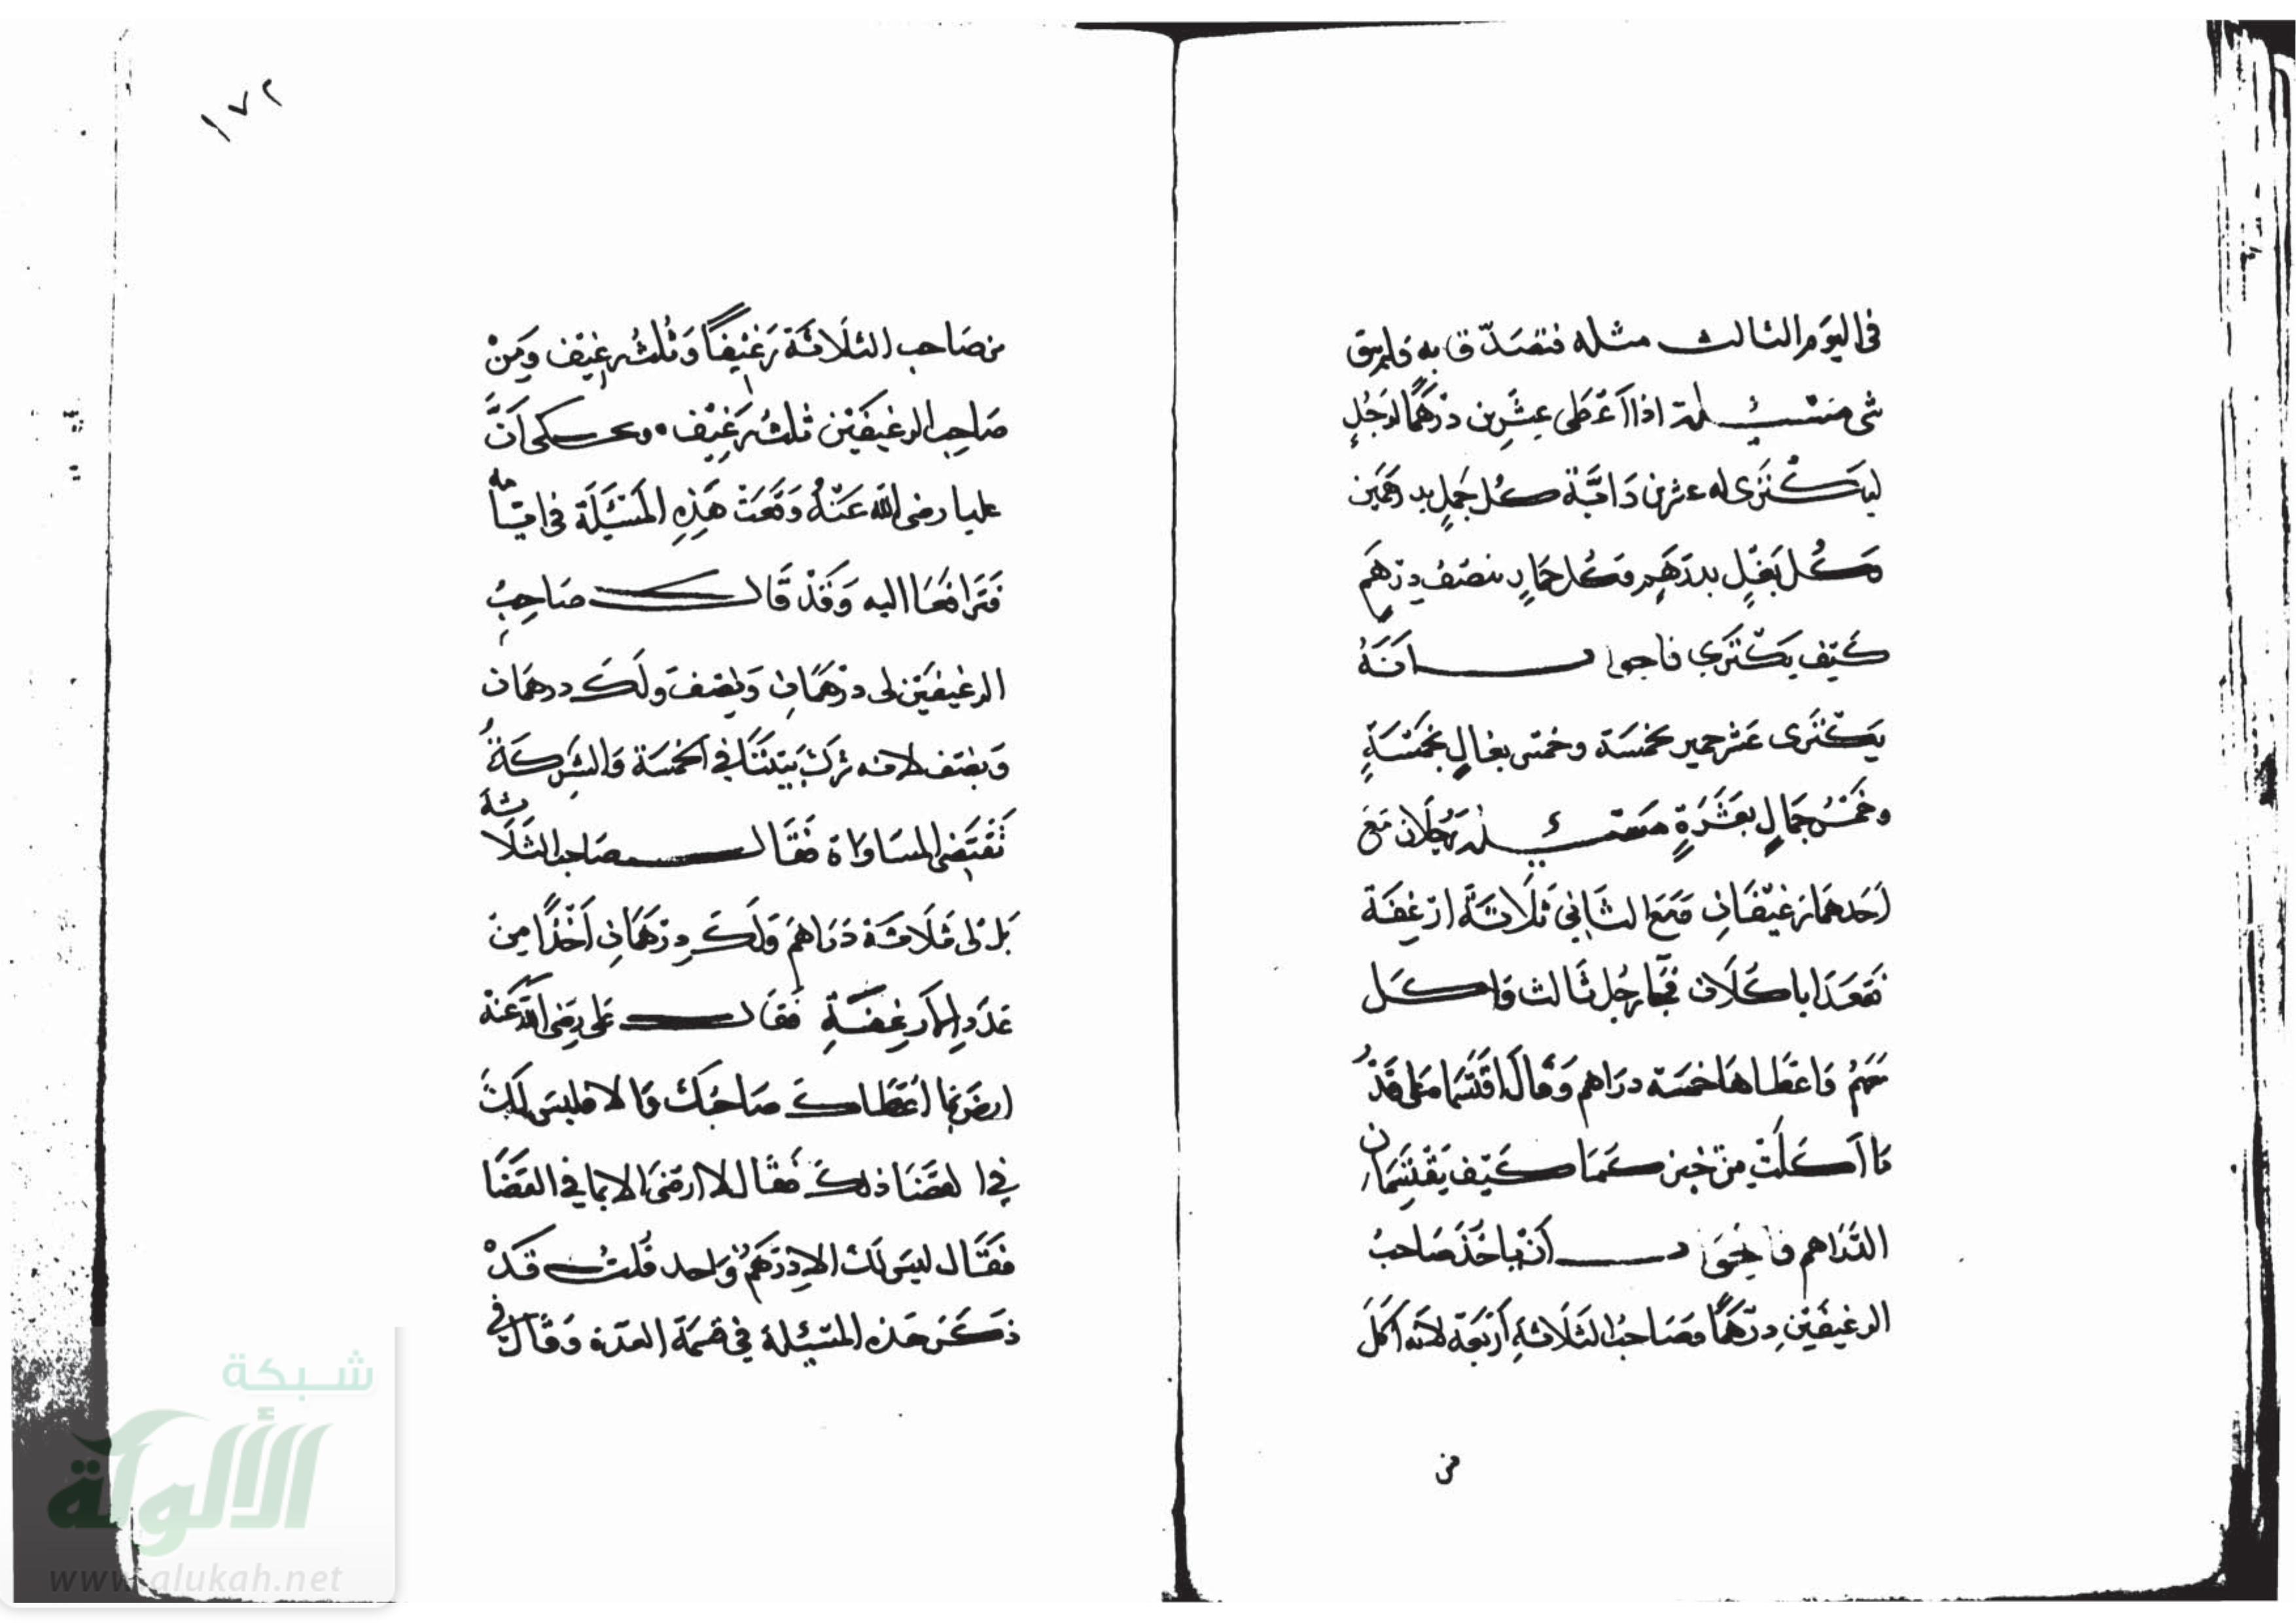 في اليوم الثالث مثله فتصدق به فلم يبق
شي مسئلة اذا أعطى عشرين درهما لرجل
ليكتري له عشرين دابة كل جمل بدرهمين
وكل بغل بدرهم وكل حمار بنصف درهم
كيف يكتري فاجواب انه
يكترى عشر حمير بخمسة وخمس بغال بخمسة
وخمس جمال بعشرة مسئلة رجلان مع
احدهما رغيفان ومع الثاني ثلاثة ارغفة
فقعدا ياكلان فجا رجل ثالث واكل
معهم فاعطاها خمسة دراهم وقال اقتسما على قدر
ما اكلت من خبزكما كيف يقتسمان
الدراهم فاجواب أن ياخذ صاحب
الرغيفين درهما وصاحب الثلاثة أربعة لانه اكل
من
١٧٢
من صاحب الثلاثة رغيفاً وثلث رغيف ومن
صاحب الرغيفين ثلث رغيف وحكى أن
عليا رضى الله عنه وقعت هذه المسئلة في ايامه
فترافعا اليه وقد قال صاحب
الرغيفين لى درهمان ونصف ولك درهمان
ونصف لانه شرك بيننا في الخمسة والشركة
تقتضى المساواة فقال صاحب الثلاثة
بل لى ثلاثة دراهم ولك درهمان أخذا من
عدد الأرغفة فقال على رضى الله عنه
ارض بما أعطاك صاحبك والا فليس لك
في القضا ذلك فقال لا ارضى الا بما في القضا
فقال ليس لك الا درهم واحد قلت قد
ذكر هذه المسئلة في قسمة العدة وقال في
شبكة
الألوكة
www.alukah.net